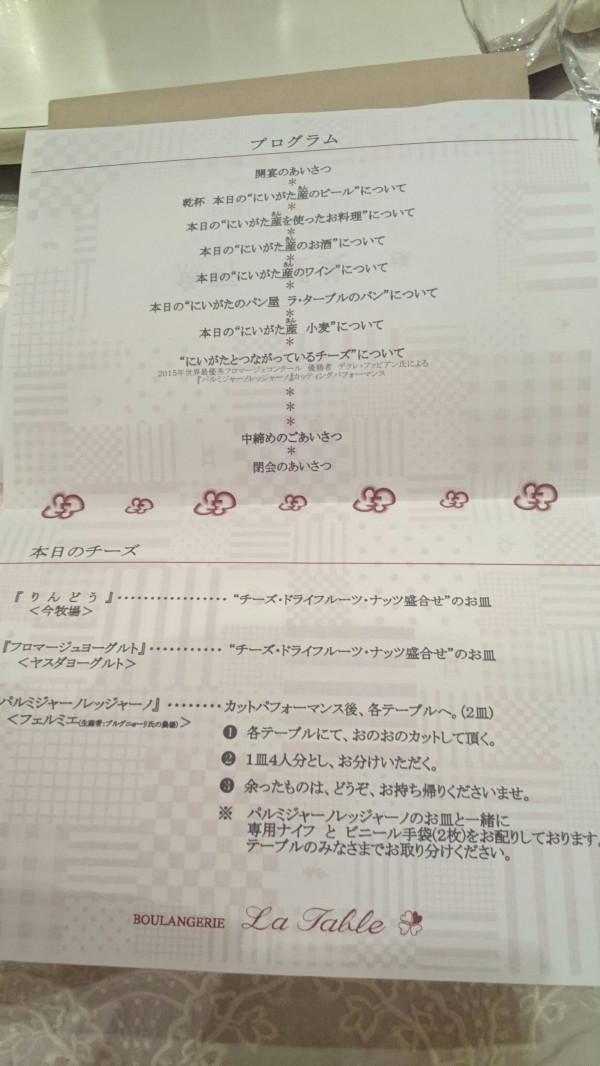 プログラム
開宴のあいさつ
*
乾杯 本日の“にいがた産のビール”について
*
本日の“にいがた産を使ったお料理”について
*
本日の“にいがた産のお酒”について
*
本日の“にいがた産のワイン”について
*
本日の“にいがたのパン屋 ラ・ターブルのパン”について
*
本日の“にいがた産 小麦”について
*
“にいがたとつながっているチーズ”について
2015年世界最優秀フロマージェコンクール 優勝者 デクレ・ファビアン氏による
『パルミジャーノレッジャーノ』カッティングパフォーマンス
*
*
*
中締めのごあいさつ
*
閉会のあいさつ
本日のチーズ
『 り ん ど う 』・・・・・・・・・・・・・・・・・“チーズ・ドライフルーツ・ナッツ盛合せ”のお皿
＜今牧場＞
『フロマージュヨーグルト』・・・・・・・・・・・“チーズ・ドライフルーツ・ナッツ盛合せ”のお皿
＜ヤスダヨーグルト＞
パルミジャーノレッジャーノ』・・・・・・・・カットパフォーマンス後、各テーブルへ。(2皿)
＜フェルミエ(生産者:ブルグニョーリ氏の農場)＞
❶ 各テーブルにて、おのおのカットして頂く。
❷ 1皿4人分とし、お分けいただく。
❸ 余ったものは、どうぞ、お持ち帰りくださいませ。
※ パルミジャーノレッジャーノのお皿と一緒に
専用ナイフ と ビニール手袋(2枚)をお配りしております。
テーブルのみなさまでお取り分けください。
BOULANGERIE La Table